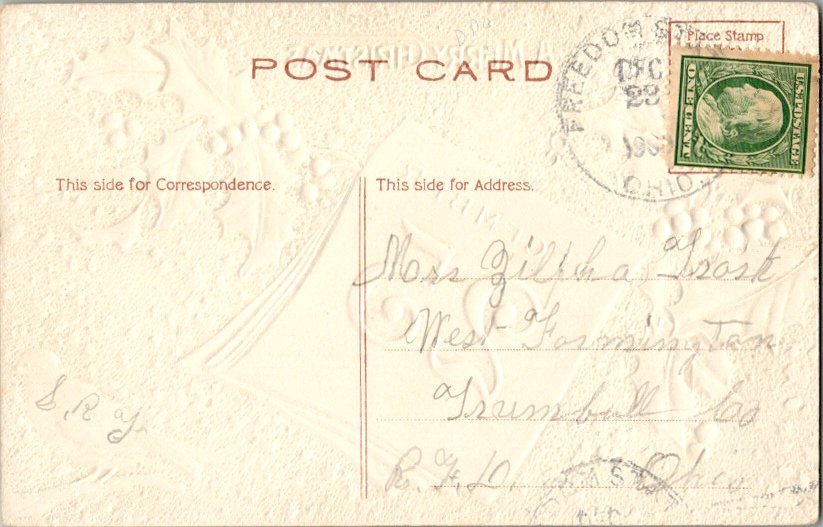 A MERRY CHRISTMAS
POST CARD
Place Stamp
FREEDOM STA
DEC
23
OHIO
U.S. POSTAGE
ONE CENT
This side for Correspondence.
This side for Address.
Mrs Zilpha Frost
West Farmington
Trumbull Co
R.F.D. Ohio
S. R. F.